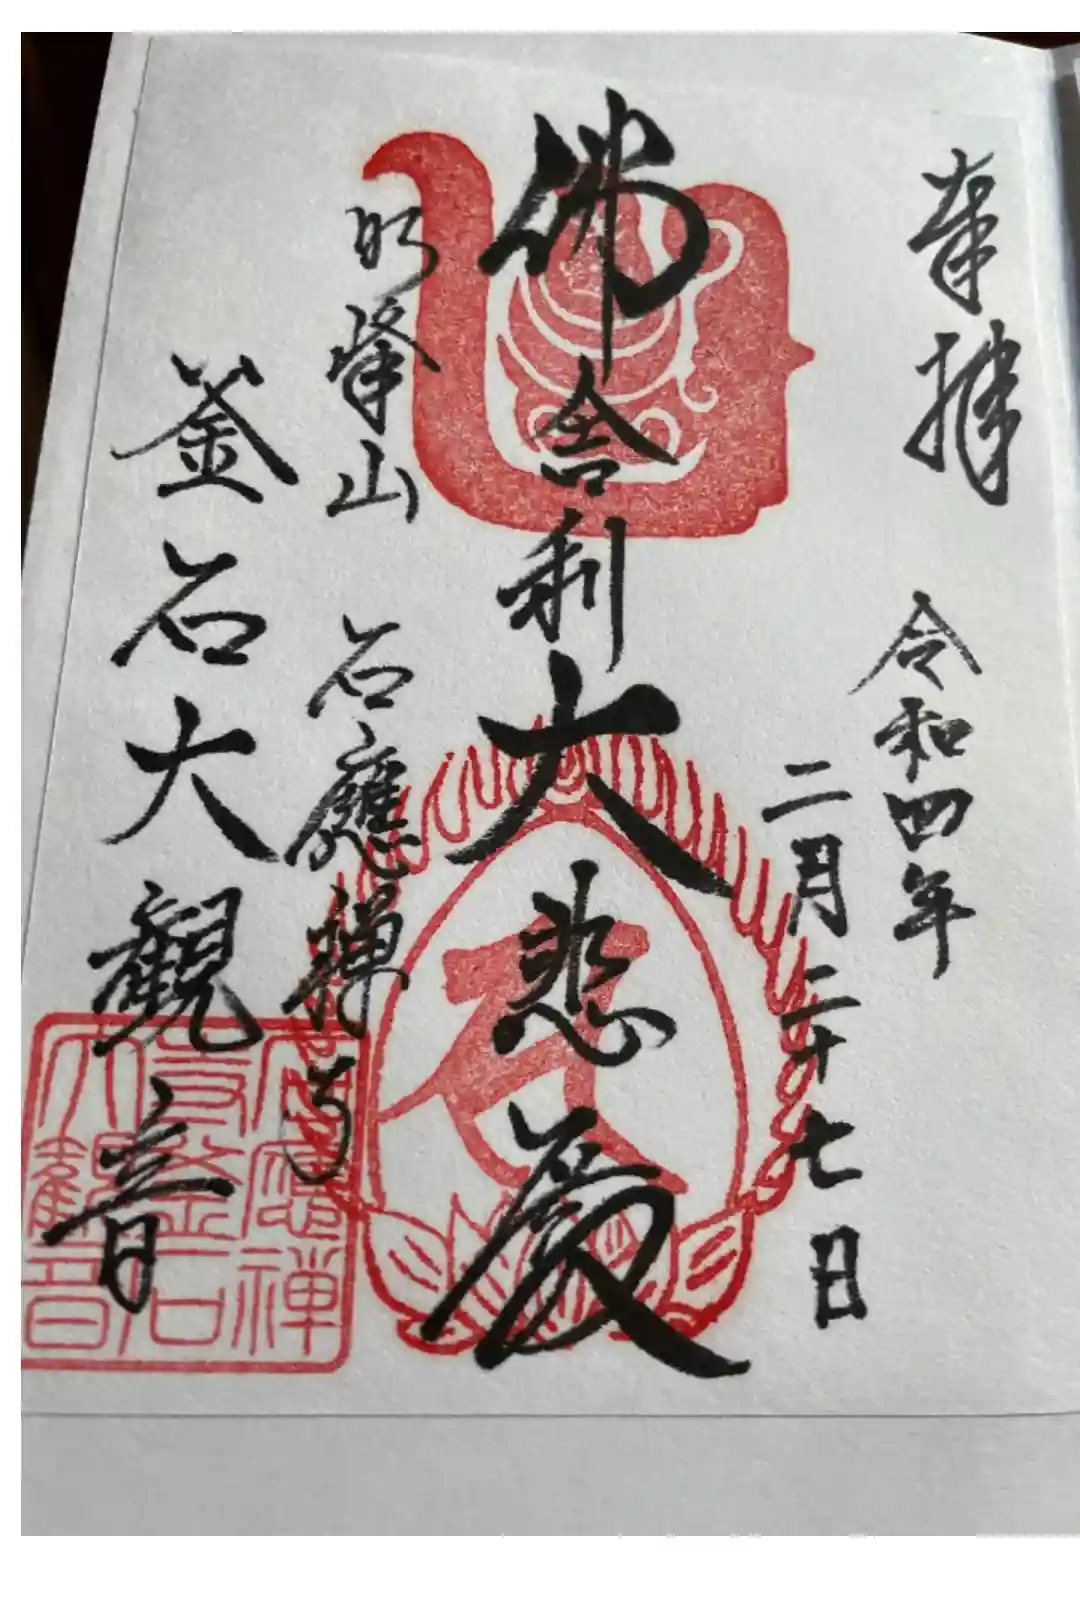 奉拝
令和四年
二月二十七日
佛舎利大悲殿
明峰山 石應禅寺
釜石大観音
石応禅
寺釜石
大観音